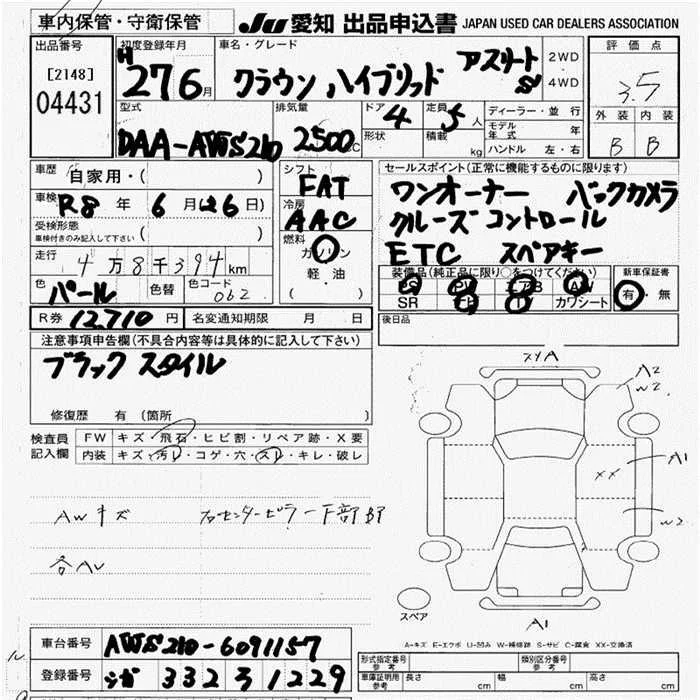 車内保管・守衛保管
JU 愛知 出品申込書 JAPAN USED CAR DEALERS ASSOCIATION
出品番号
[2148]
04431
初度登録年月
H 27 6月
車名・グレード
クラウン ハイブリッド アスリートS
2WD
4WD
評価点
3.5
外装 内装
B B
型式
DAA-AWS210
排気量
2500cc
ドア 4
形状
定員 5人
積載 kg
ディーラー・並行
モデル年式 年
ハンドル 左・右
車歴 自家用・( )
車検 R8年 6月(26日)
受検形態
車検付きのみ記入して下さい ( )
走行 4万8千394km
色 パール
色替
色コード 062
R券 12,710円
名変通知期限 月 日
シフト
FAT
冷房
AAC
燃料
ガソリン
軽・油
( )
セールスポイント(正常に機能するものに限ります)
ワンオーナー バックカメラ
クルーズコントロール
ETC スペアキー
装備品(純正品に限り○をつけてください)
PS PW エアB AW
SR カワシート
新車保証書
有・無
後日品
注意事項申告欄(不具合内容等は具体的に記入して下さい)
ブラックスタイル
修復歴 有(箇所 )
検査員記入欄
FW キズ・飛石・ヒビ割・リペア跡・X要
内装 キズ・汚レ・コゲ・穴・スレ・キレ・破レ
AWキズ
右センターピラー下部
各AU
XXA
A2
W2
A1
XX
W2
A1
スペア
A-キズ E-エクボ U-凹み W-補修跡 S-サビ C-腐食 XX-交換済
車台番号 AWS210-6091157
登録番号 332 3 1229
形式指定番号 参考
類別区分番号 参考
車庫証明用 参考
長さ cm
幅 cm
高さ cm